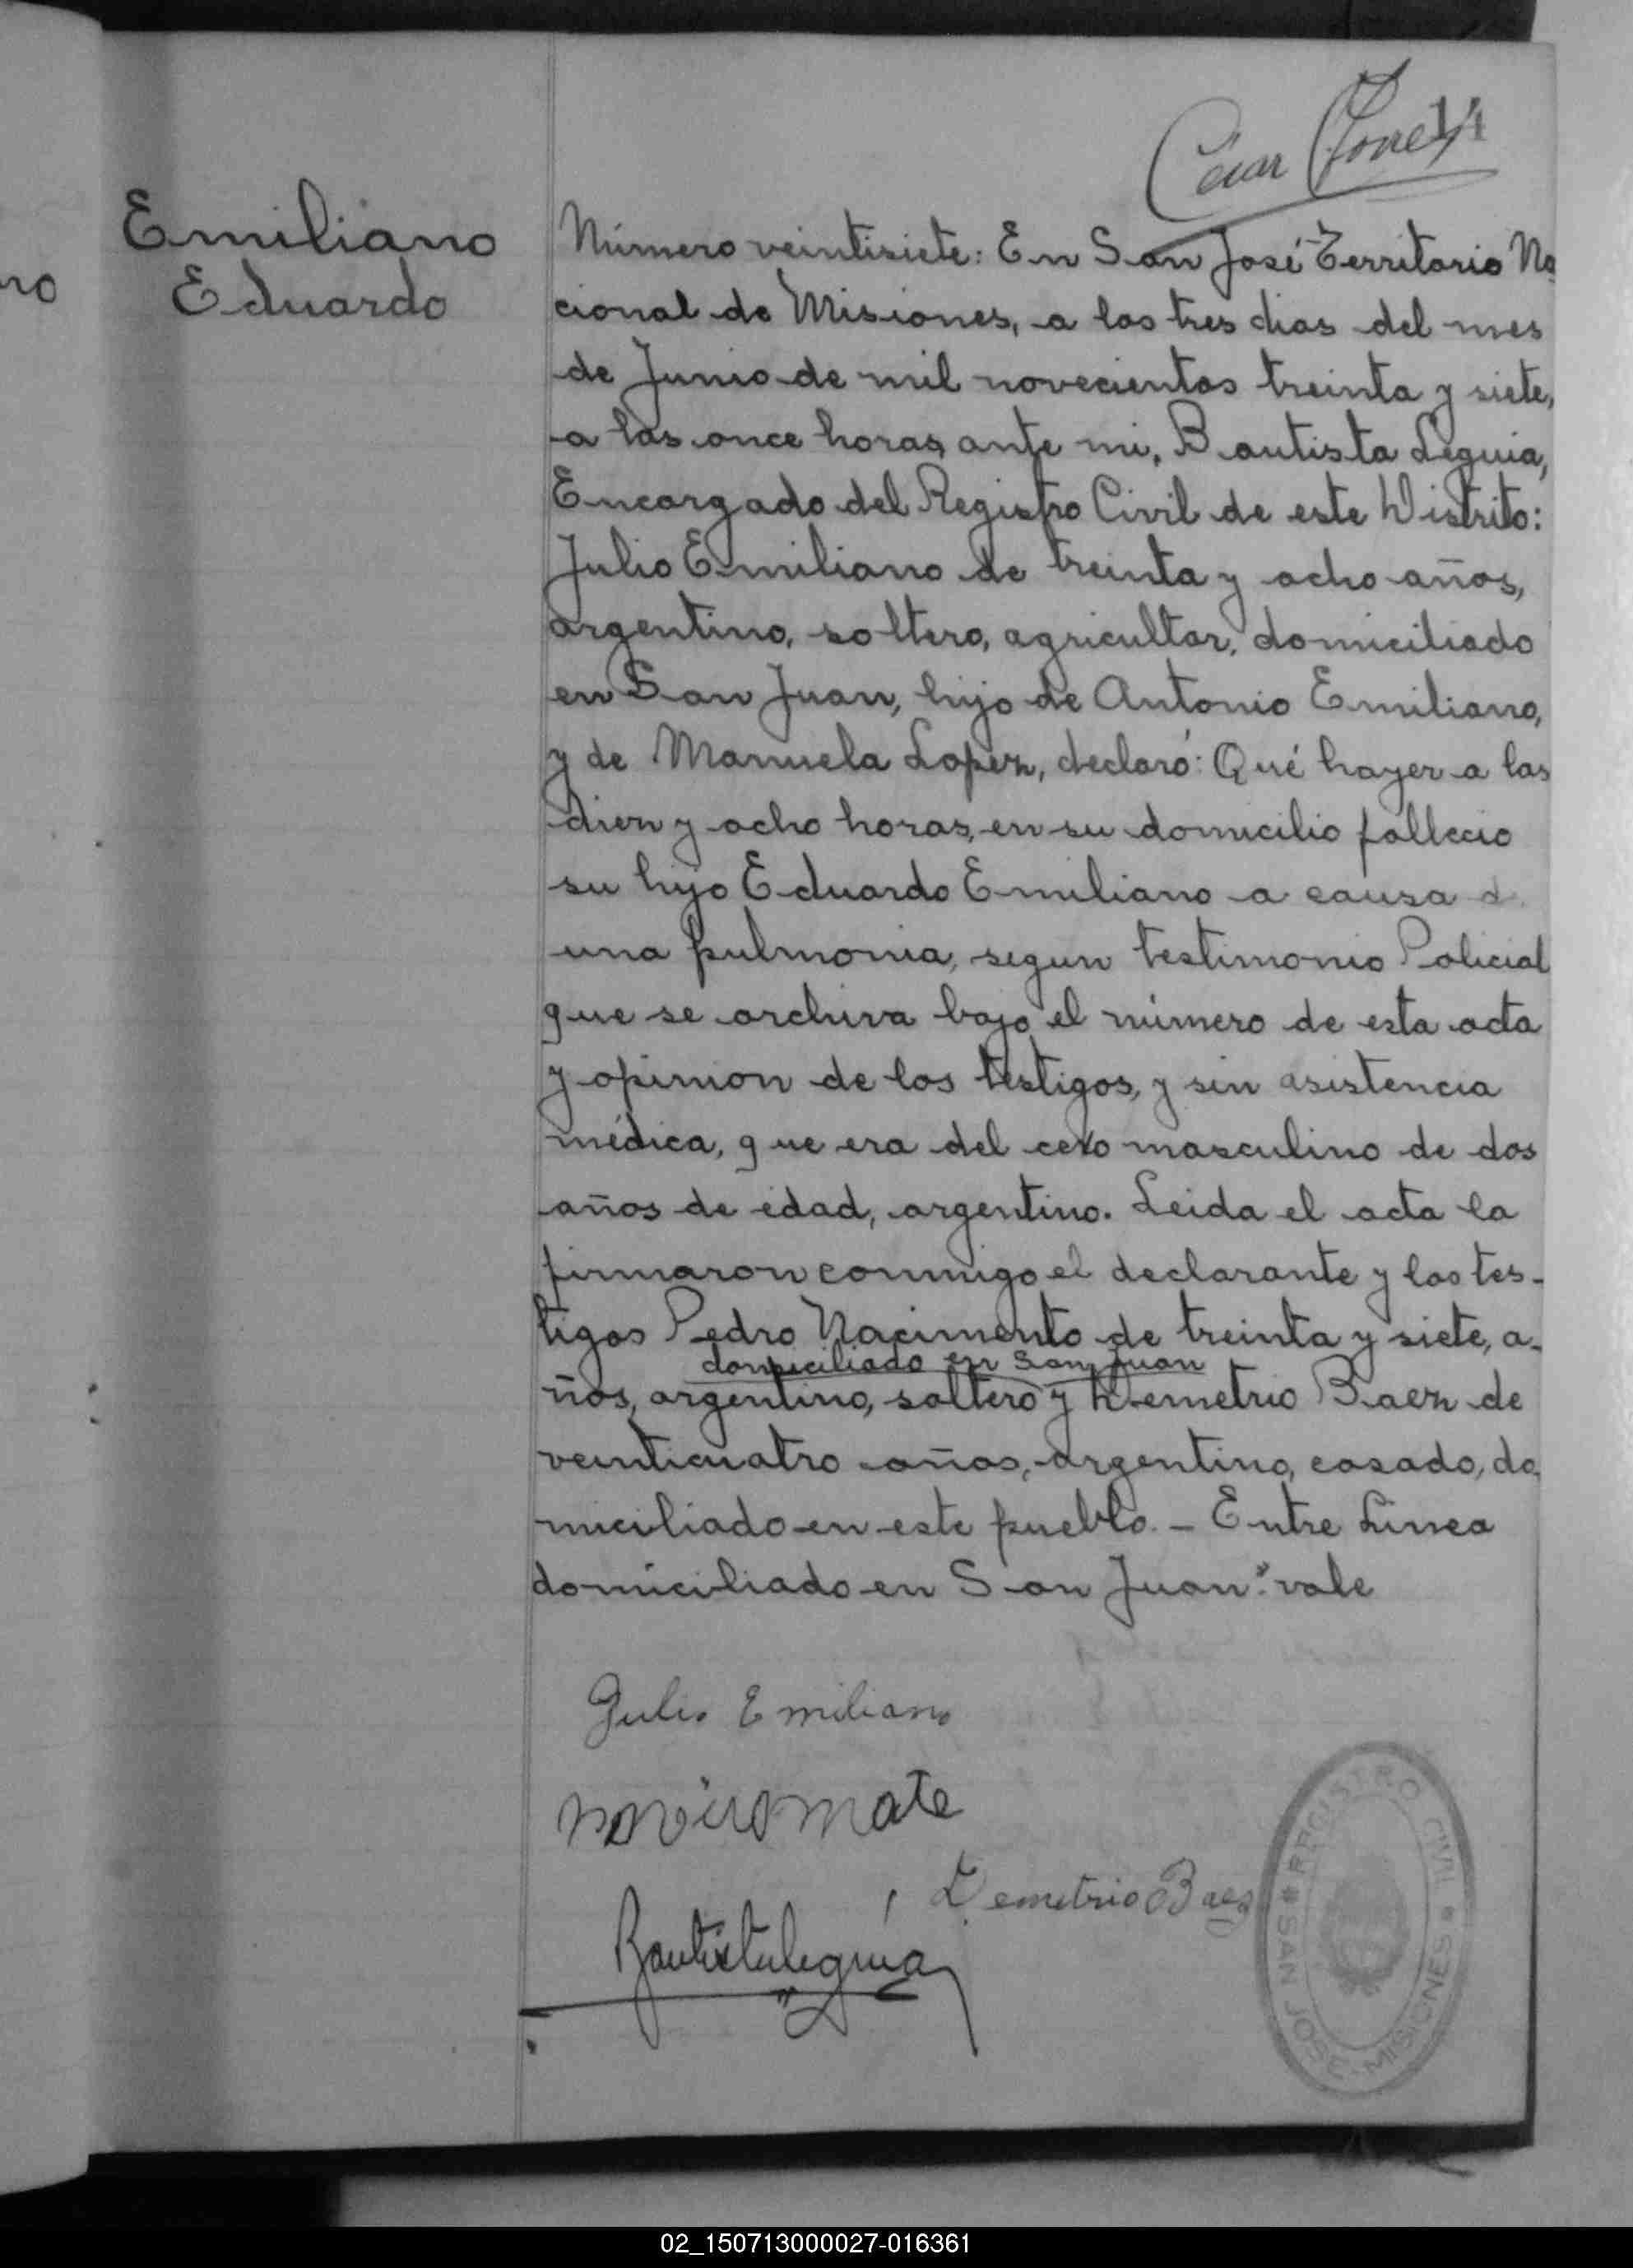 César
14
no
Emiliano
Eduardo
Número veintisiete: En San José Territorio Na
cional de Misiones, a los tres dias del mes
de Junio de mil novecientos treinta y siete,
a las once horas, ante mi, Bautista Leguia,
Encargado del Registro Civil de este Distrito:
Julio Emiliano de treinta y ocho años,
argentino, soltero, agricultor, domiciliado
en San Juan, hijo de Antonio Emiliano,
y de Manuela Lopez, declaró: Qué hayer a las
diez y ocho horas, en su domicilio fallecio
su hijo Eduardo Emiliano a causa d
una pulmonia, segun testimonio Policial
que se archiva bajo el número de esta acta
y opinion de los testigos, y sin asistencia
médica, que era del cexo masculino de dos
años de edad, argentino. Leida el acta la
firmaron conmigo el declarante y los tes-
tigos Pedro Nacimento de treinta y siete, a-
domiciliado en San Juan
ños, argentino, soltero y Demetrio Baez de
veinticuatro años, argentino, casado, do
miciliado en este pueblo. - Entre Linea
domiciliado en San Juan": vale
Julio Emiliano
Demetrio Baez
Bautista Leguia
REGISTRO CIVIL
* SAN JOSE - MISIONES *
02_150713000027-016361